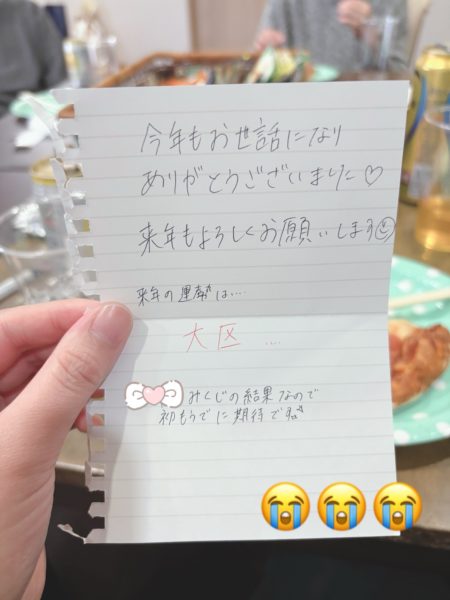 今年もお世話になり
ありがとうございました♡
来年もよろしくお願いします☺
来年の運勢は…
大区…
みくじの結果なので
初もうでに期待です
😭😭😭